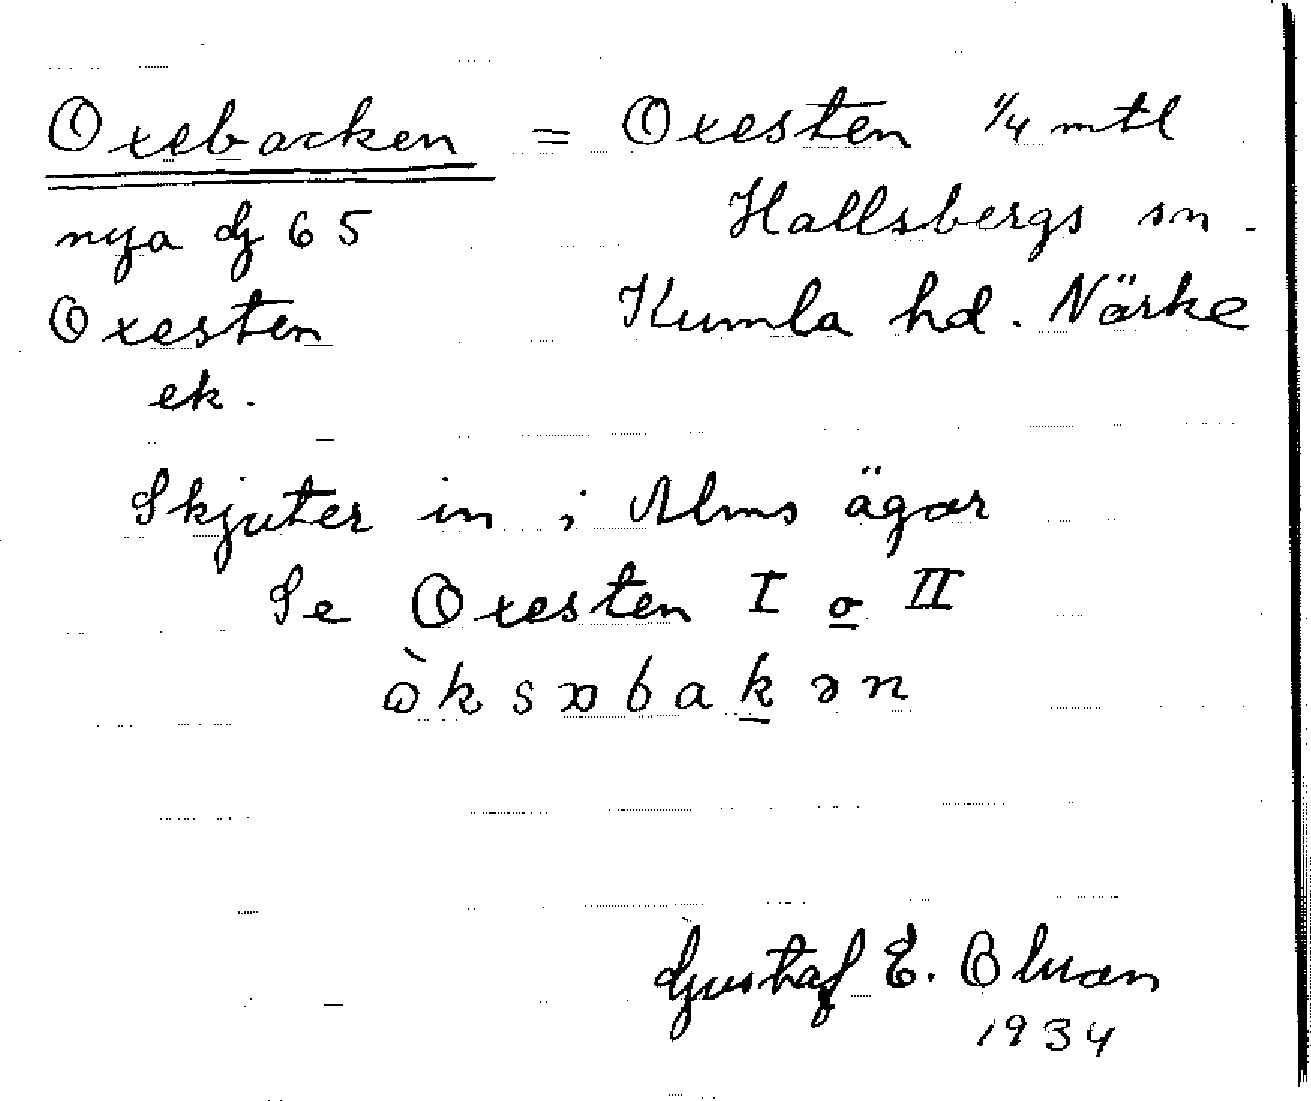 Oxebacken = Oxesten 1/4 mtl
nya dj 65 Hallsbergs sn.
Oxesten Kumla hd. Närke
ek.
Skjuter in i Alms ägor
Se Oxesten I o II
Gustaf E.
1934